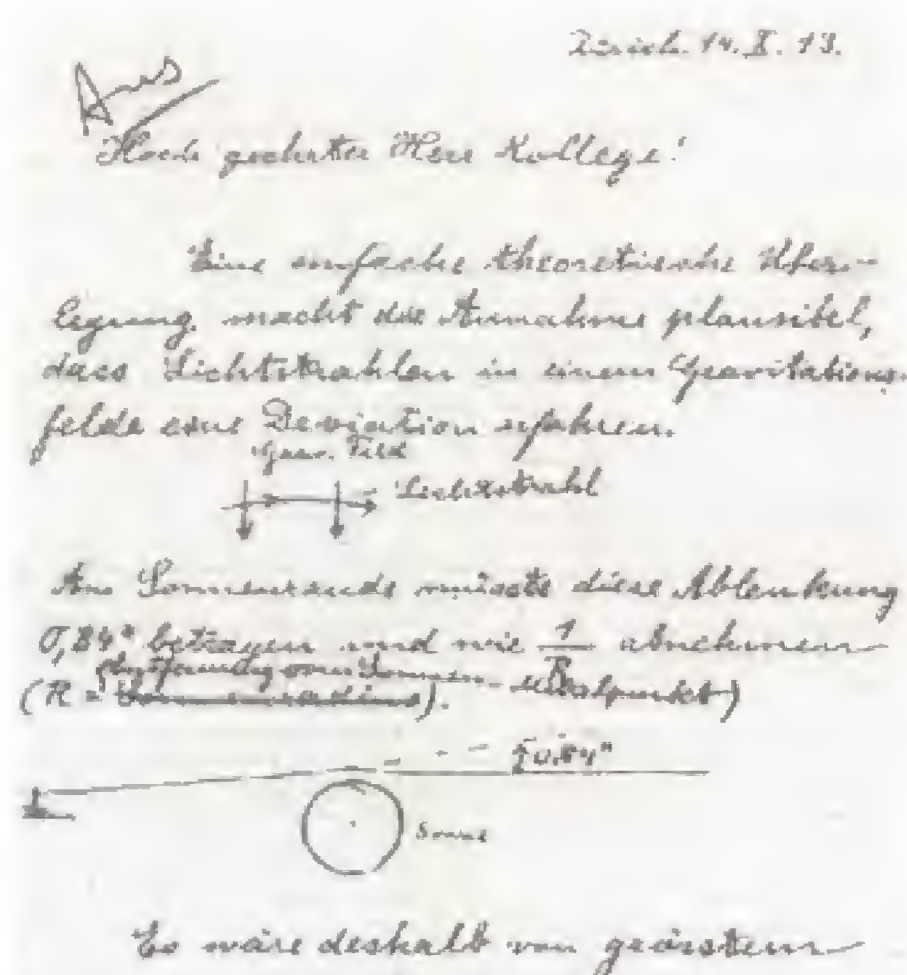 Zürich. 14. X. 13.
Hoch geehrter Herr Kollege!
Eine einfache theoretische Über-
legung macht die Annahme plausibel,
dass Lichtstrahlen in einem Gravitations-
felde eine Deviation erfahren.
Grav. Feld
Lichtstrahl
Am Sonnenrande müsste diese Ablenkung
0,84" betragen und wie 1/R abnehmen
(R = Sonnenradius). Entfernung vom Sonnen-Mittelpunkt)
0.84"
Sonne
Es wäre deshalb von grösstem